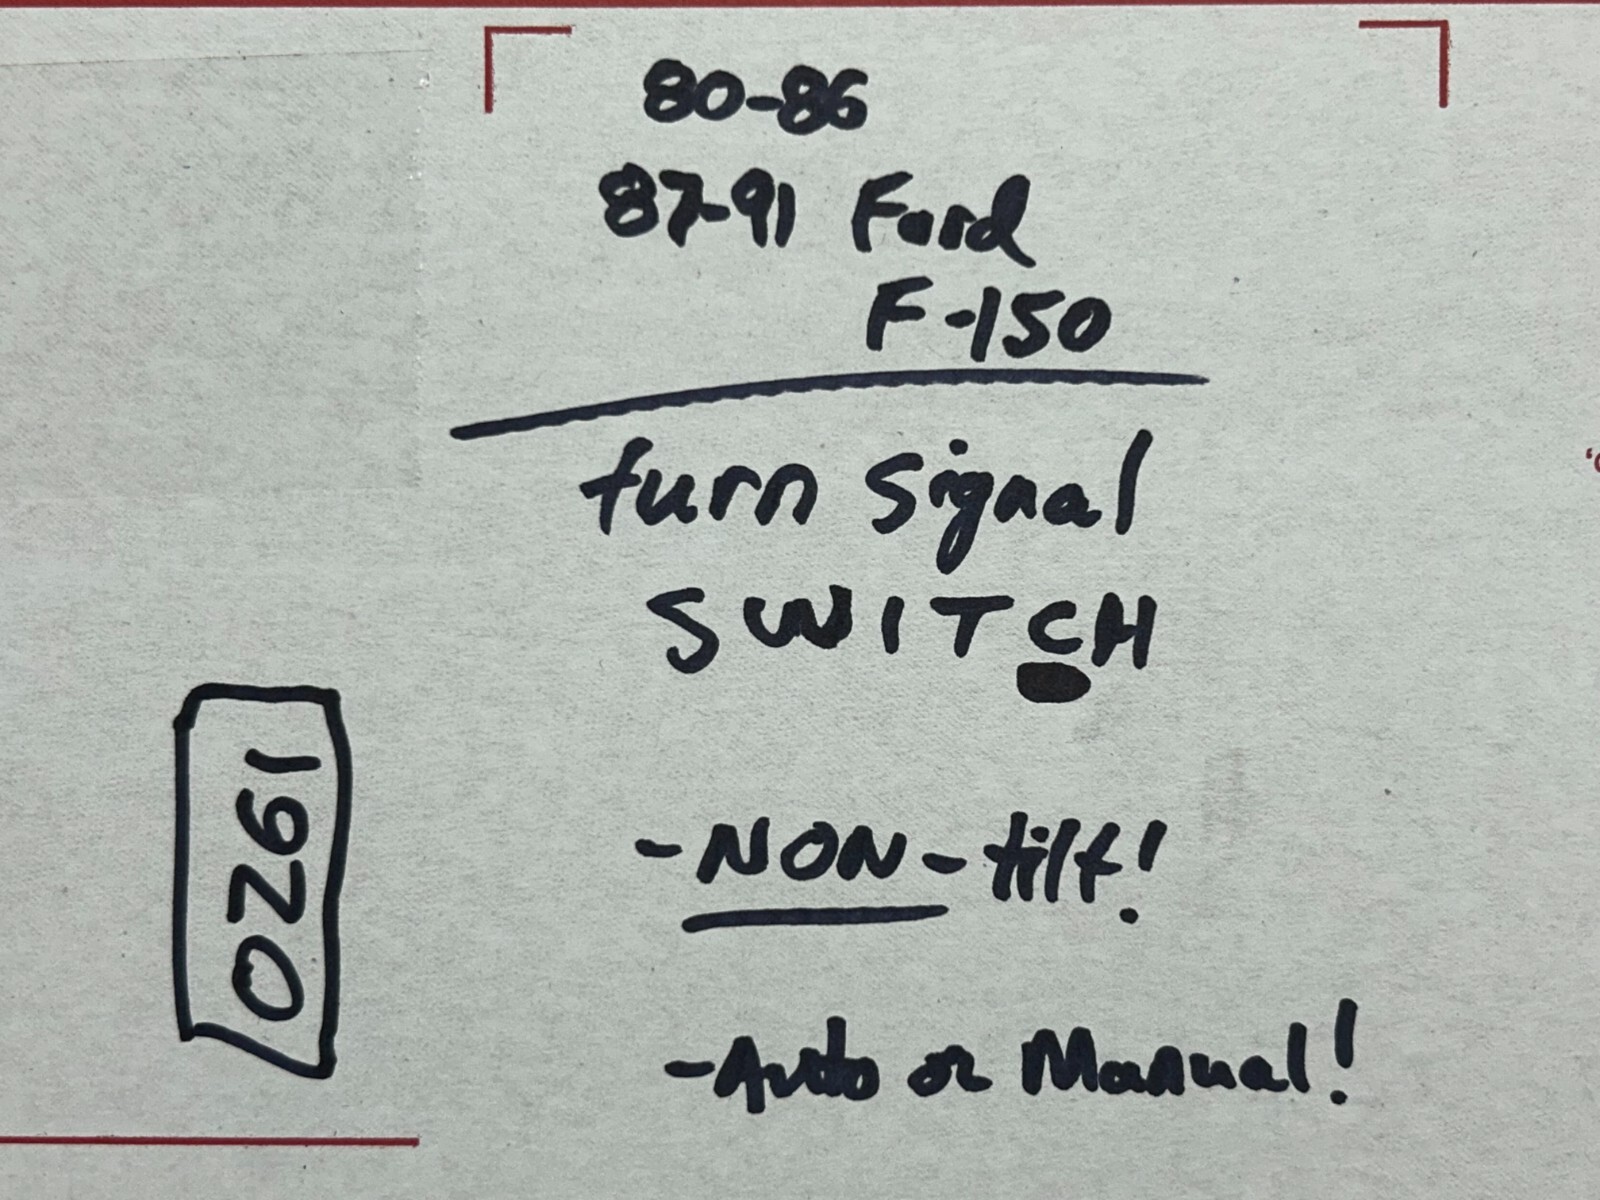 80-86
87-91 Ford
F-150
turn signal
SWITCH
-NON-tilt!
-Auto or Manual!
1920